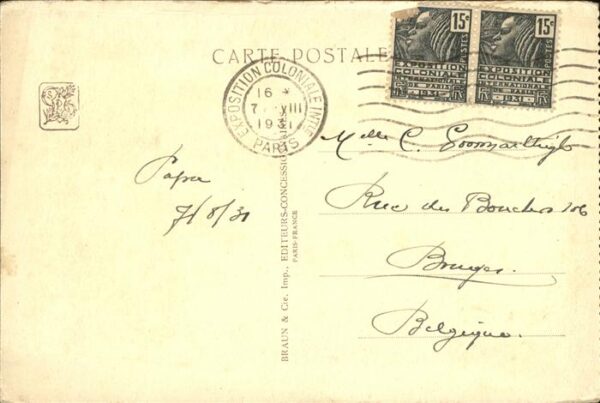 CARTE POSTALE
15c 15c
POSTES POSTES
EXPOSITION COLONIALE INTERNATIONALE PARIS 1931
EXPOSITION COLONIALE INTERNATIONALE PARIS 1931
EXPOSITION COLONIALE INTLE
16 *
7 VIII
1931
PARIS
Papa
7/8/31
BRAUN & Cie, Imp., EDITEURS-CONCESSIONNAIRES
PARIS-FRANCE
Melle C.
Rue des Bouchers 106
Bruges.
Belgique.